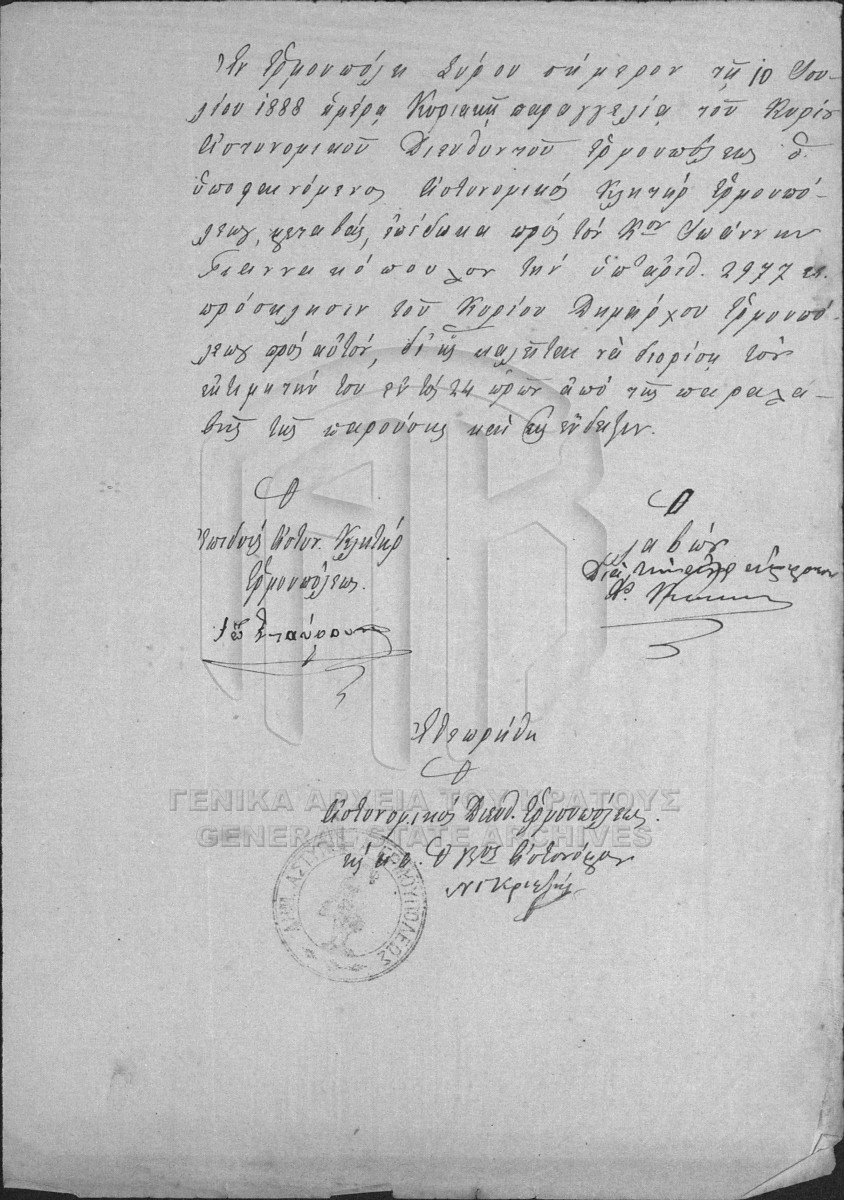 Ἐν Ἑρμουπόλει Σύρου σήμερον τῇ 10 Ἰου-
λίου 1888 ἡμέρᾳ Κυριακῇ παραγγελίᾳ τοῦ Κυρίου
Ἀστυνομικοῦ Διευθυντοῦ Ἑρμουπόλεως ὁ
ὑποφαινόμενος Ἀστυνομικός Κλητήρ Ἑρμουπό-
λεως, μεταβάς, ἐπέδωκα πρός τόν Κον Ἰωάννην
Γιαννακόπουλον τήν ὑπ' ἀριθ. 2977
πρόσκλησιν τοῦ Κυρίου Δημάρχου Ἑρμουπό-
λεως πρός αὐτόν, δι' ἧς καλεῖται νά διορίσῃ τόν
ἐκτιμητήν του ἐντός 24 ὡρῶν ἀπό τῆς παραλα-
βῆς τῆς παρούσης καί εἰς ἔνδειξιν.
Ὁ
Ἐπιδούς Ἀστυν. Κλητήρ
Ἑρμουπόλεως.
Ὁ
λαβών
Ἐθεωρήθη
Ὁ
Ἀστυνομικός Διευθ. Ἑρμουπόλεως.
Ὁ Βος Ἀστυνόμος
ΓΕΝΙΚΑ ΑΡΧΕΙΑ ΤΟΥ ΚΡΑΤΟΥΣ
GENERAL STATE ARCHIVES